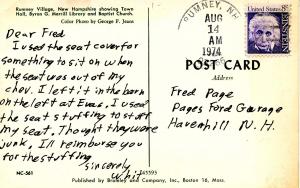 Rumney Village, New Hampshire showing Town
Hall, Byron G. Merrill Library and Baptist Church.
Color Photo by George F. Jeans
Dear Fred
I used the seat cover for
something to sit on when
the seat was out of my
chev. I left it in the barn
on the left at Evas. I used
the seat stuffing to stuff
my seat. Thought they were
junk. I'll reimburse you
for the stuffing
sincerely
Whit
RUMNEY, N.H.
AUG
14
AM
1974
EINSTEIN
8c
UNITED STATES
POST CARD
Address
Fred Page
Pages Ford Garage
Haverhill N. H.
NC-561
Published by Bromley and Company, Inc., Boston 16, Mass.